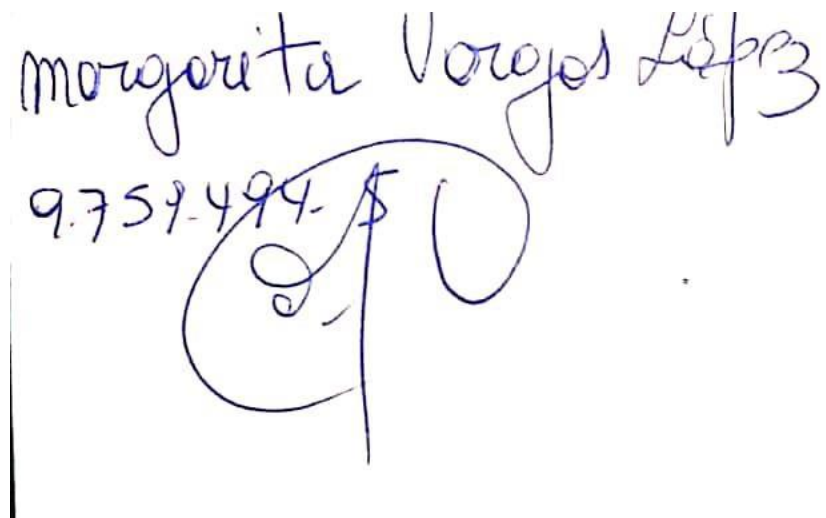 Margarita Vargas López
9.759.494-5